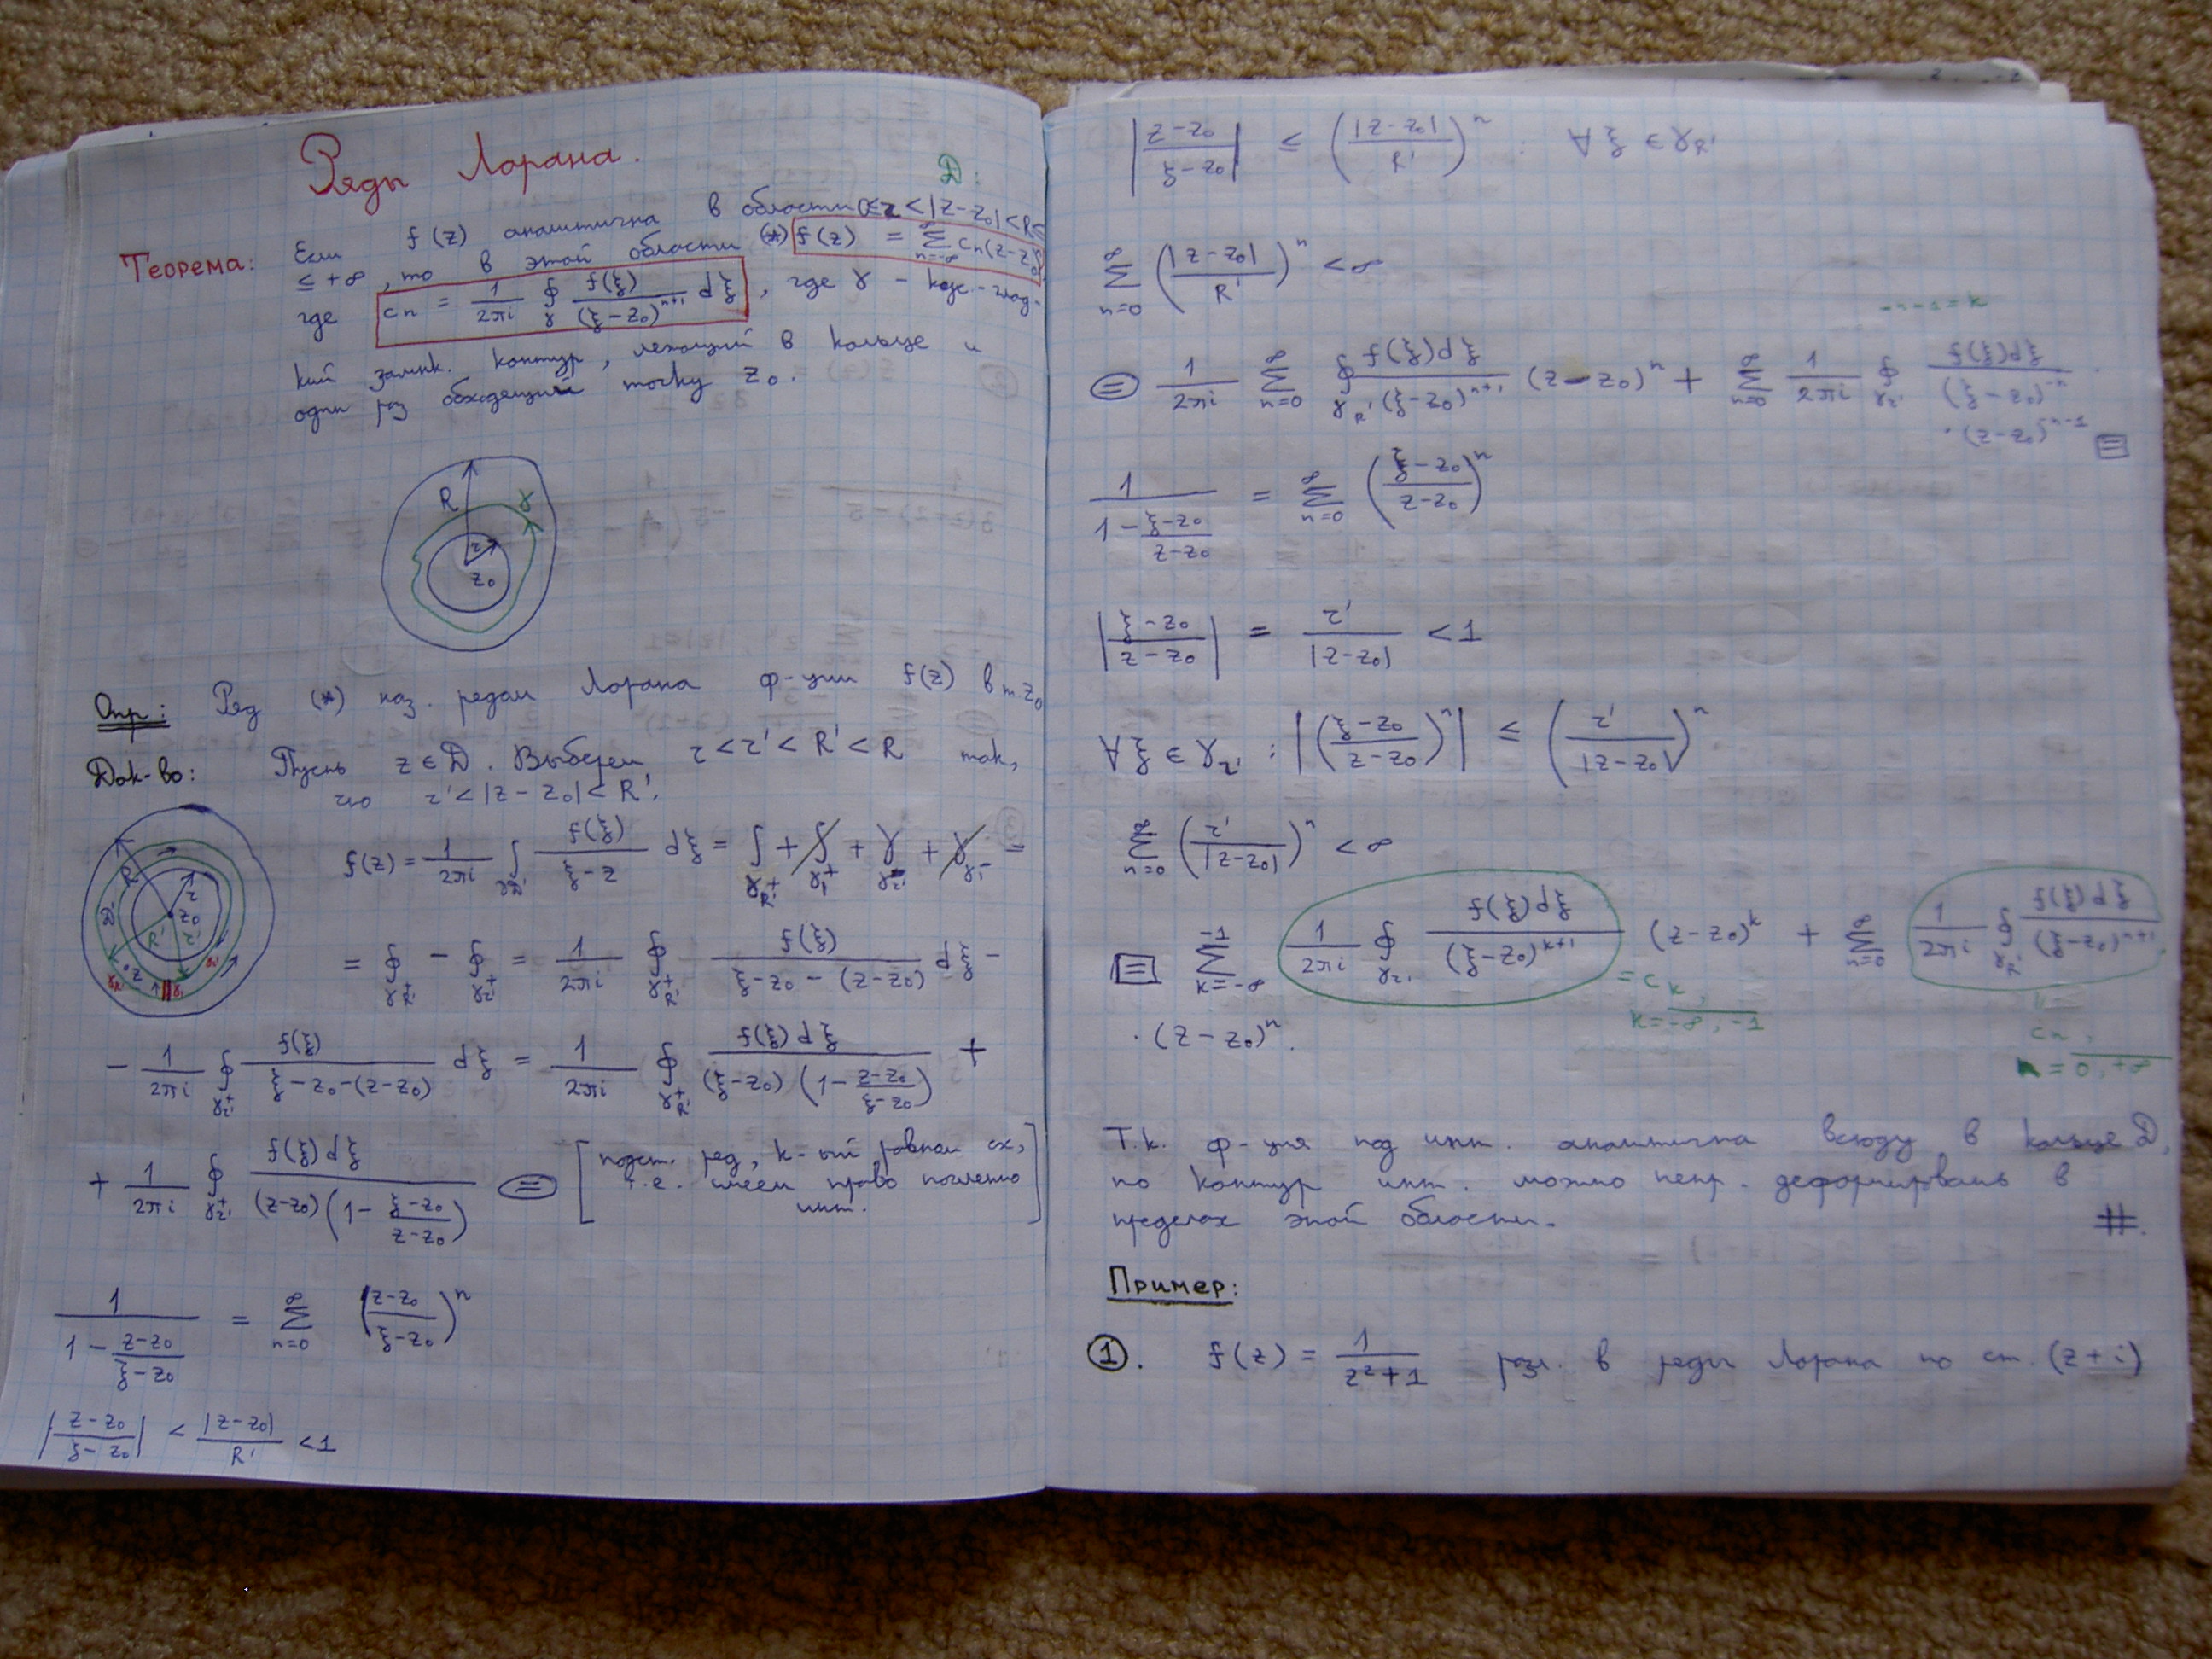 Ряды Лорана.
D:
Теорема: Если f(z) аналитична в области 0≤r<|z-z₀|<R≤
≤+∞, то в этой области (*) f(z) = ∑_{n=-∞}^{∞} cₙ(z-z₀)ⁿ
где cₙ = 1/(2πi) ∮_γ f(ξ)/(ξ-z₀)^{n+1} dξ, где γ - кус.-глад-
кий замкн. контур, лежащий в кольце и
один раз обходящий точку z₀.
R γ
r
z₀
Опр: Ряд (*) наз. рядом Лорана ф-ции f(z) в т. z₀
Док-во: Пусть z∈D. Выберем r<r'<R'<R так,
что r'<|z-z₀|<R'.
R r z₀ D' R' r' z γ_{R'} γ₁ γ_{r'}
f(z) = 1/(2πi) ∫_{γ_{D'}} f(ξ)/(ξ-z) dξ = ∫_{γ_{R'}^+} + ∫_{γ₁^+} + ∫_{γ_{r'}^-} + ∫_{γ₁^-} =
= ∮_{γ_{R'}^+} - ∮_{γ_{r'}^+} = 1/(2πi) ∮_{γ_{R'}^+} f(ξ)/(ξ-z₀-(z-z₀)) dξ -
- 1/(2πi) ∮_{γ_{r'}^+} f(ξ)/(ξ-z₀-(z-z₀)) dξ = 1/(2πi) ∮_{γ_{R'}^+} f(ξ)dξ/((ξ-z₀)(1-(z-z₀)/(ξ-z₀))) +
+ 1/(2πi) ∮_{γ_{r'}^+} f(ξ)dξ/((z-z₀)(1-(ξ-z₀)/(z-z₀))) (=) [подст. ряд, к-ый равном. сх,
т.е. имеем право почленно
инт.]
1/(1-(z-z₀)/(ξ-z₀)) = ∑_{n=0}^{∞} ((z-z₀)/(ξ-z₀))ⁿ
|(z-z₀)/(ξ-z₀)| < |z-z₀|/R' <1
|(z-z₀)/(ξ-z₀)| ≤ (|z-z₀|/R')ⁿ : ∀ξ∈γ_{R'}
∑_{n=0}^{∞} (|z-z₀|/R')ⁿ <∞
-n-1=k
(=) 1/(2πi) ∑_{n=0}^{∞} ∮_{γ_{R'}} f(ξ)dξ/(ξ-z₀)^{n+1} (z-z₀)ⁿ + ∑_{n=0}^{∞} 1/(2πi) ∮_{γ_{r'}} f(ξ)dξ/(ξ-z₀)^{-n} ·
·(z-z₀)^{-n-1} [=]
1/(1-(ξ-z₀)/(z-z₀)) = ∑_{n=0}^{∞} ((ξ-z₀)/(z-z₀))ⁿ
|(ξ-z₀)/(z-z₀)| = r'/|z-z₀| <1
∀ξ∈γ_{r'} : |((ξ-z₀)/(z-z₀))ⁿ| ≤ (r'/|z-z₀|)ⁿ
∑_{n=0}^{∞} (r'/|z-z₀|)ⁿ <∞
[=] ∑_{k=-∞}^{-1} 1/(2πi) ∮_{γ_{r'}} f(ξ)dξ/(ξ-z₀)^{k+1} (z-z₀)^k + ∑_{n=0}^{∞} 1/(2πi) ∮_{γ_{R'}} f(ξ)dξ/(ξ-z₀)^{n+1} ·
= c_k, k=-∞,-1
·(z-z₀)ⁿ.
= cₙ, n=0,+∞
Т.к. ф-ция под инт. аналитична всюду в кольце D,
то контур инт. можно непр. деформировать в
пределах этой области. #.
Пример:
①. f(z) = 1/(z²+1) разл. в ряды Лорана по ст. (z+i)